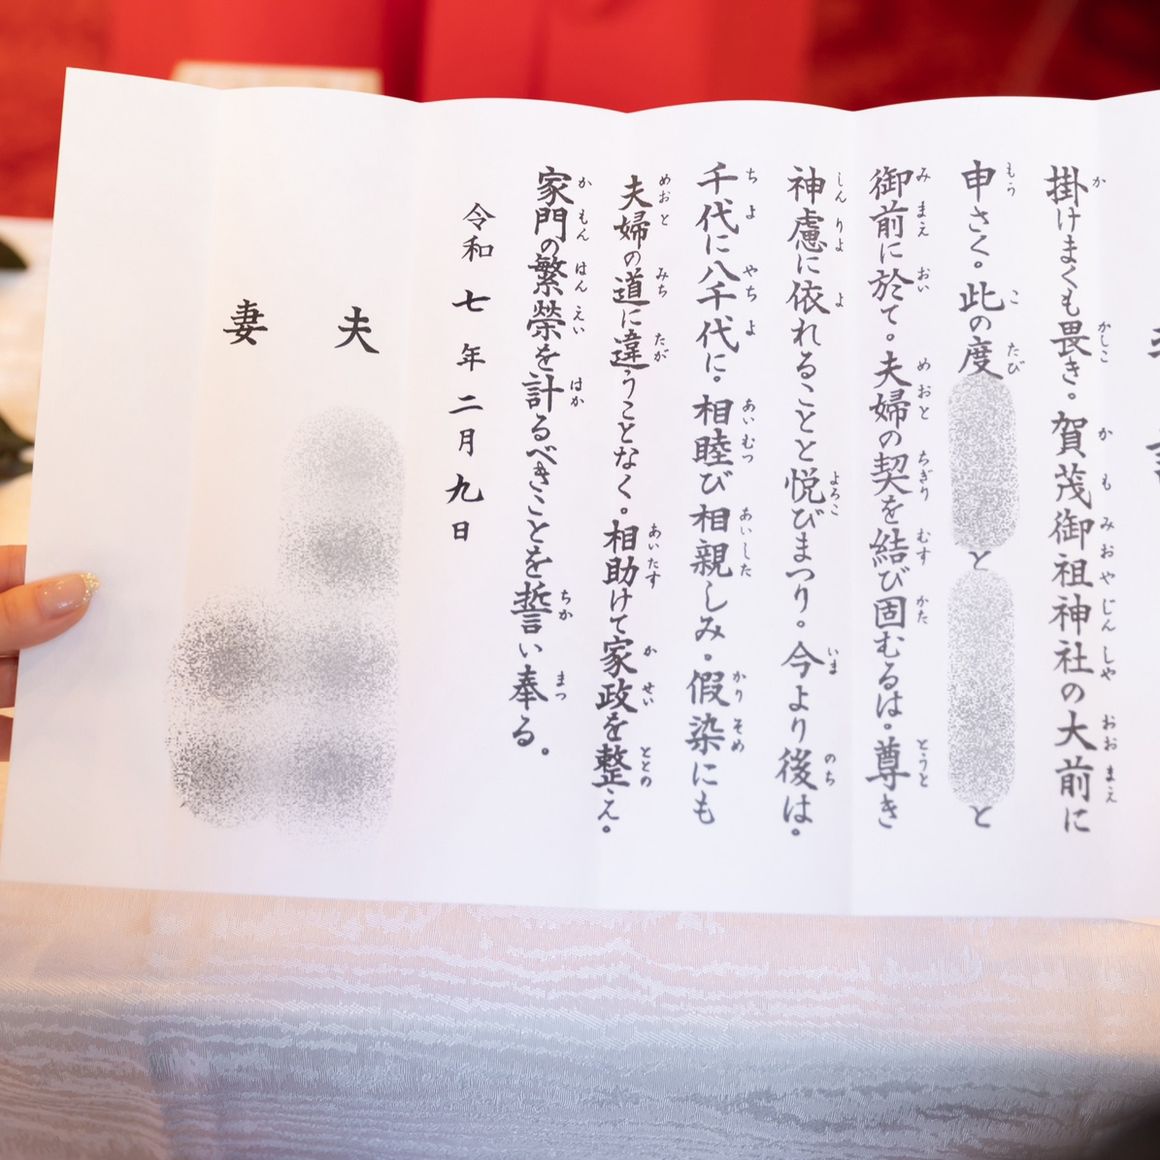 掛けまくも畏き。賀茂御祖神社の大前に
申さく。此の度
と
と
御前に於て。夫婦の契を結び固むるは。尊き
神慮に依れることと悦びまつり。今より後は。
千代に八千代に。相睦び相親しみ。假染にも
夫婦の道に違うことなく。相助けて家政を整え。
家門の繁榮を計るべきことを誓い奉る。
令和七年二月九日
夫
妻